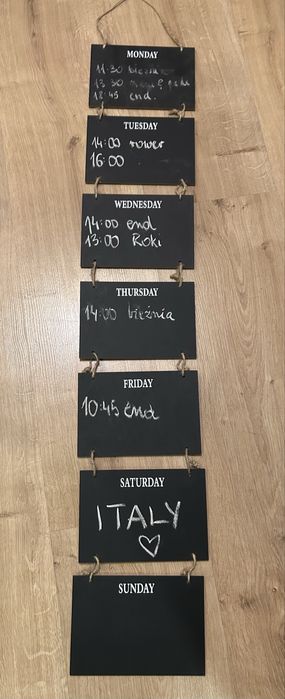 MONDAY
11:30 bieżnia
13:30
18:45 end.
TUESDAY
14:00 rower
16:00
WEDNESDAY
14:00 end
13:00 Roki
THURSDAY
14:00 bieżnia
FRIDAY
10:45 end
SATURDAY
ITALY
♡
SUNDAY